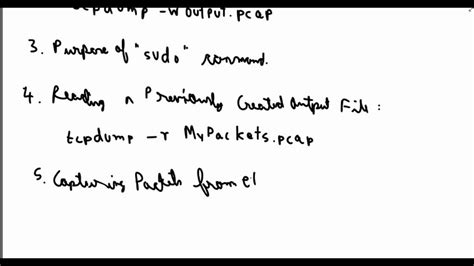 tcpdump -w output.pcap
3. Purpose of "sudo" command.
4. Reading a Previously Created Output File :
tcpdump -r MyPackets.pcap
5. Capturing Packets from el